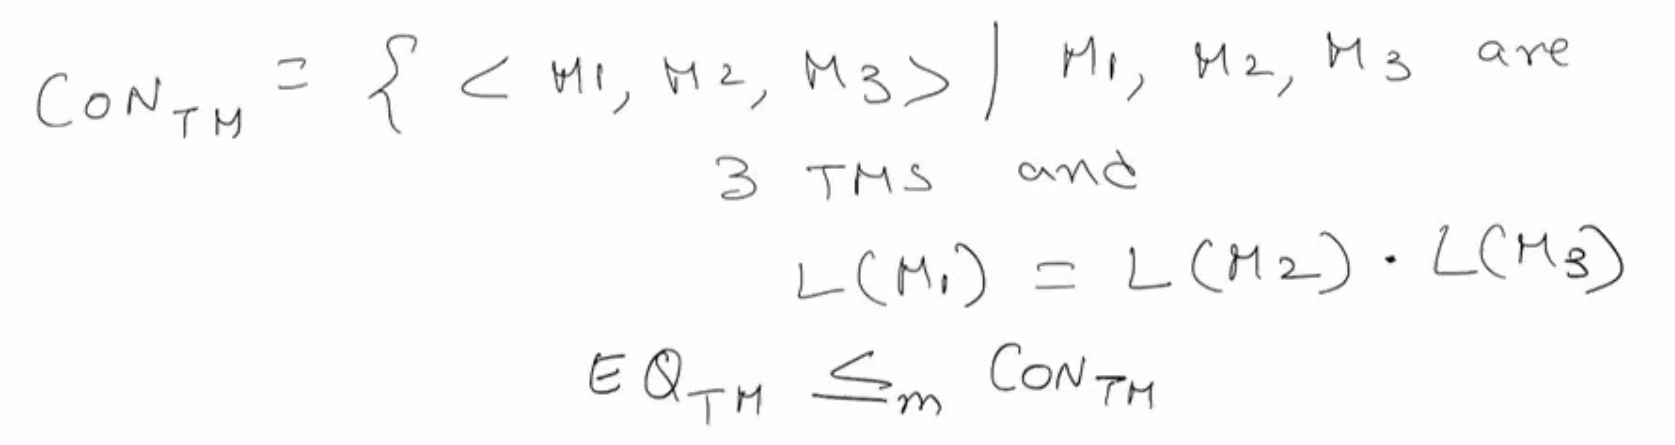 CON_TM = { < M1, M2, M3 > | M1, M2, M3 are
3 TMS and
L(M1) = L(M2) · L(M3)
EQ_TM ≤_m CON_TM